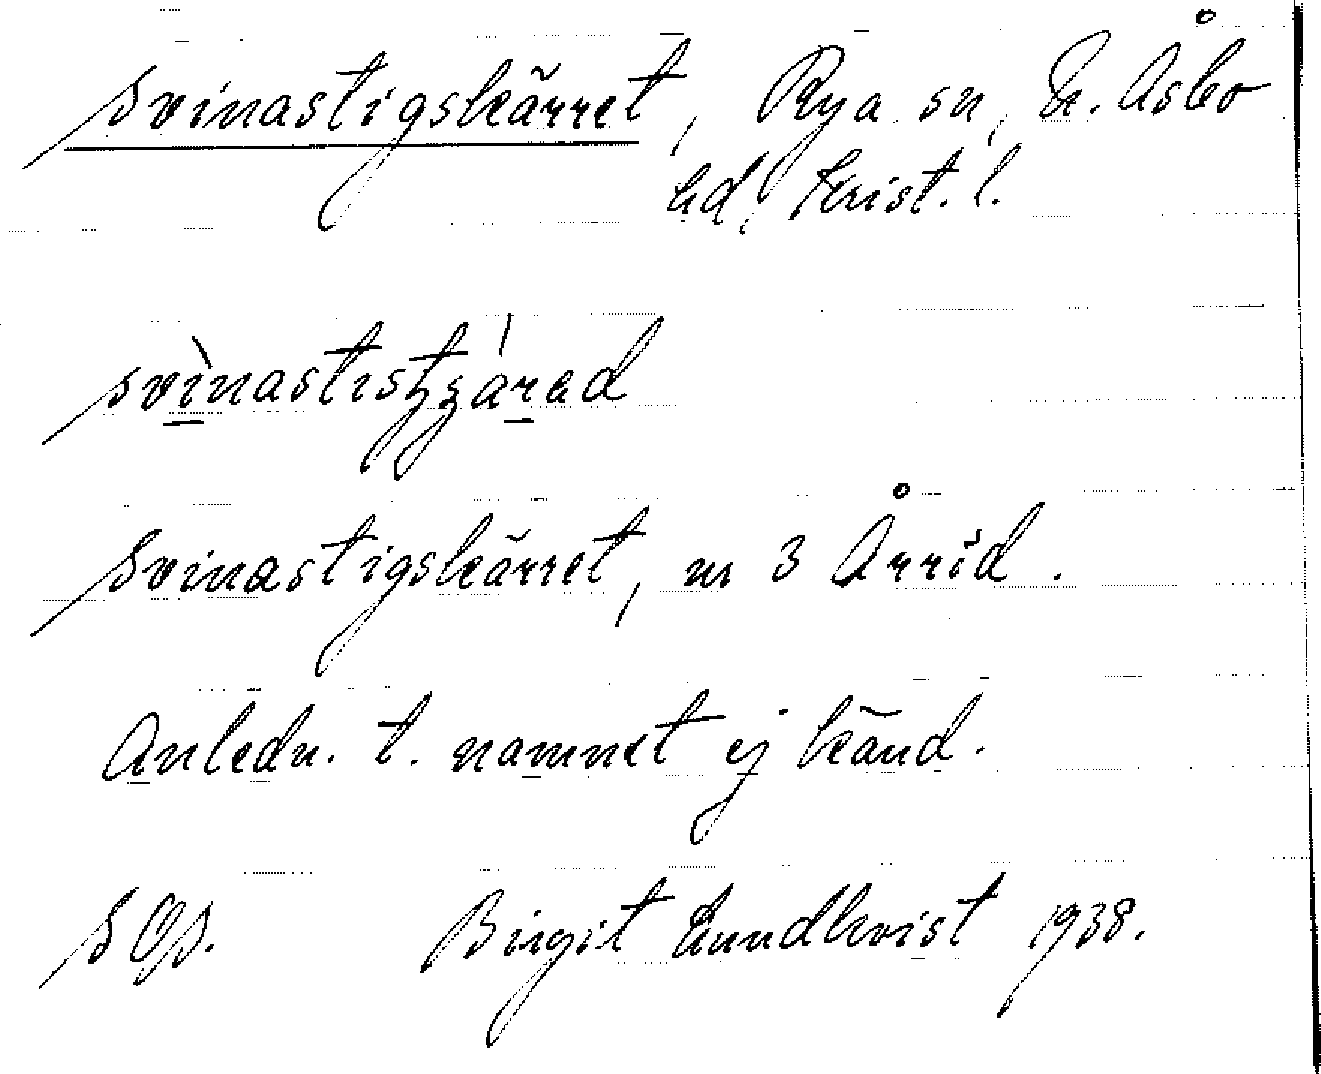 Svinastigskärret, Rya sn, N. Åsbo
hd, Krist. l.
Svinastigskärret, nr 3 Årröd.
Anledn. t. namnet ej känd.
Birgit Lundkvist 1938.